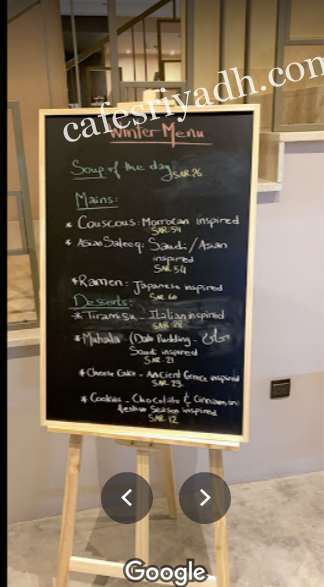 cafesriyadh.com
Winter Menu
Soup of the day SAR.26
Mains:
* Couscous: Morrocan inspired
SAR.54
* Asian Saleeq: Saudi/Asian
inspired
SAR.54
* Ramen: Japanese inspired
SAR.60
Desserts:
* Tiramisu - Italian inspired
* Muhala (Date Pudding -
Saudi inspired
SAR.21
* Cheese Cake - Ancient Greece inspired
SAR.23
* Cookies - Chocolate & Cinnamon:
festive Season inspired
SAR.12
Google